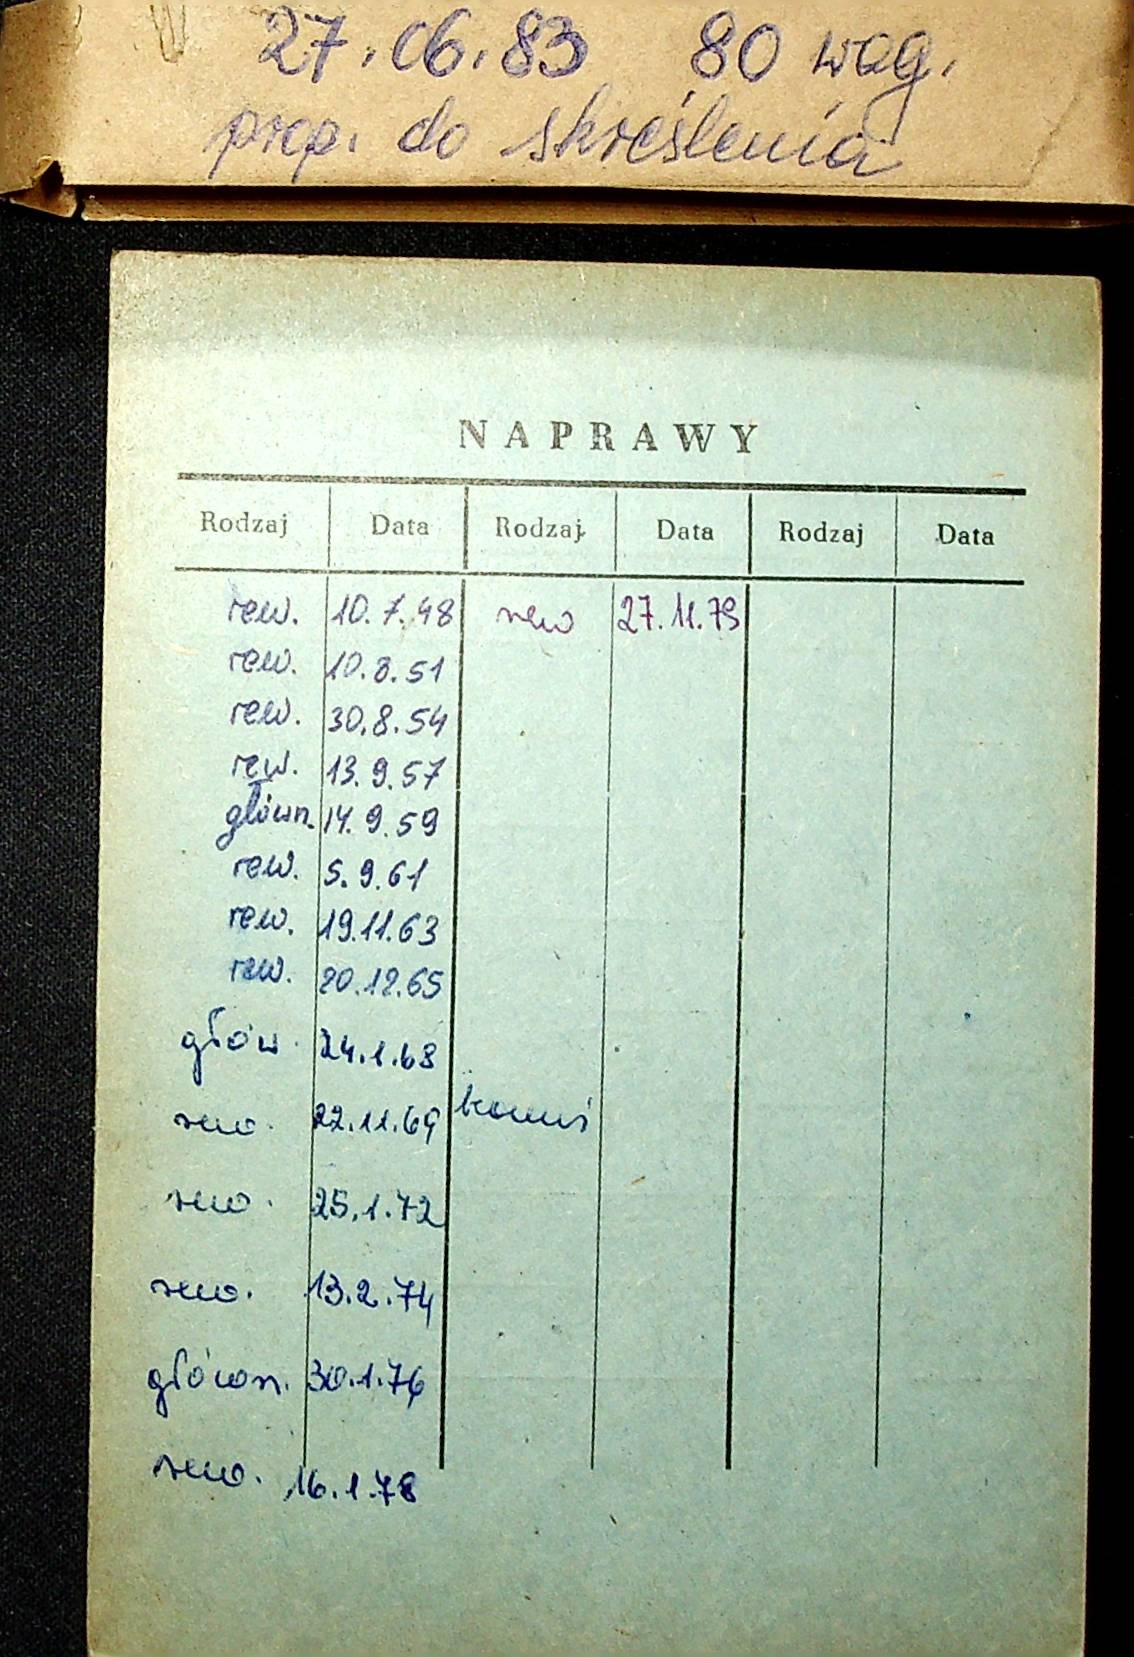 27.06.83 80 wag.
prop. do skreślenia
NAPRAWY
Rodzaj Data Rodzaj Data Rodzaj Data
rew. 10.7.48 rew 27.11.79
rew. 10.8.51
rew. 30.8.54
rew. 13.9.57
główn. 14.9.59
rew. 5.9.61
rew. 19.11.63
rew. 20.12.65
głów. 24.1.68
rew. 22.11.69
rew. 25.1.72
rew. 13.2.74
główn. 30.1.76
rew. 16.1.78